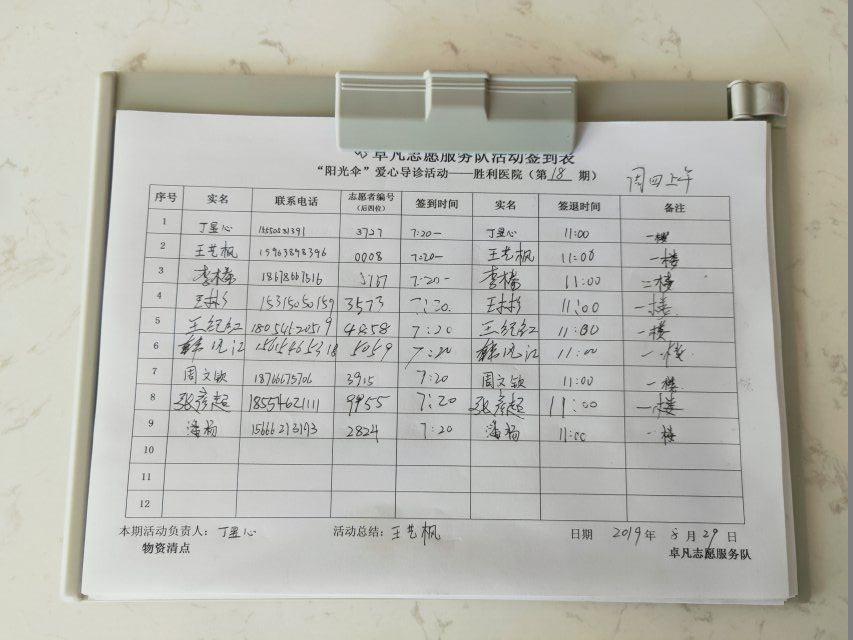 卓凡志愿服务队活动签到表
“阳光伞”爱心导诊活动——胜利医院（第18期） 周四上午
序号 实名 联系电话 志愿者编号（后四位） 签到时间 实名 签退时间 备注
1 丁昱心 3727 7:20- 丁昱心 11:00 一楼
2 王艺枫 15963898396 0008 7:20- 王艺枫 11:00 一楼
3 李楠 18678667516 7:20- 李楠 11:00 二楼
4 王彬彬 15315050159 3573 7:20 王彬彬 11:00 一楼
5 王纪红 18054620519 4858 7:20 王纪红 11:00 一楼
6 5059 7:20 11:00 一楼
7 周文钦 18766675706 3915 7:20 周文钦 11:00 一楼
8 张彦超 18554621111 9955 7:20 张彦超 11:00 一楼
9 潘杨 15666213193 2824 7:20 潘杨 11:00 一楼
10
11
12
本期活动负责人：丁昱心 活动总结：王艺枫 日期 2019年8月29日
物资清点 卓凡志愿服务队